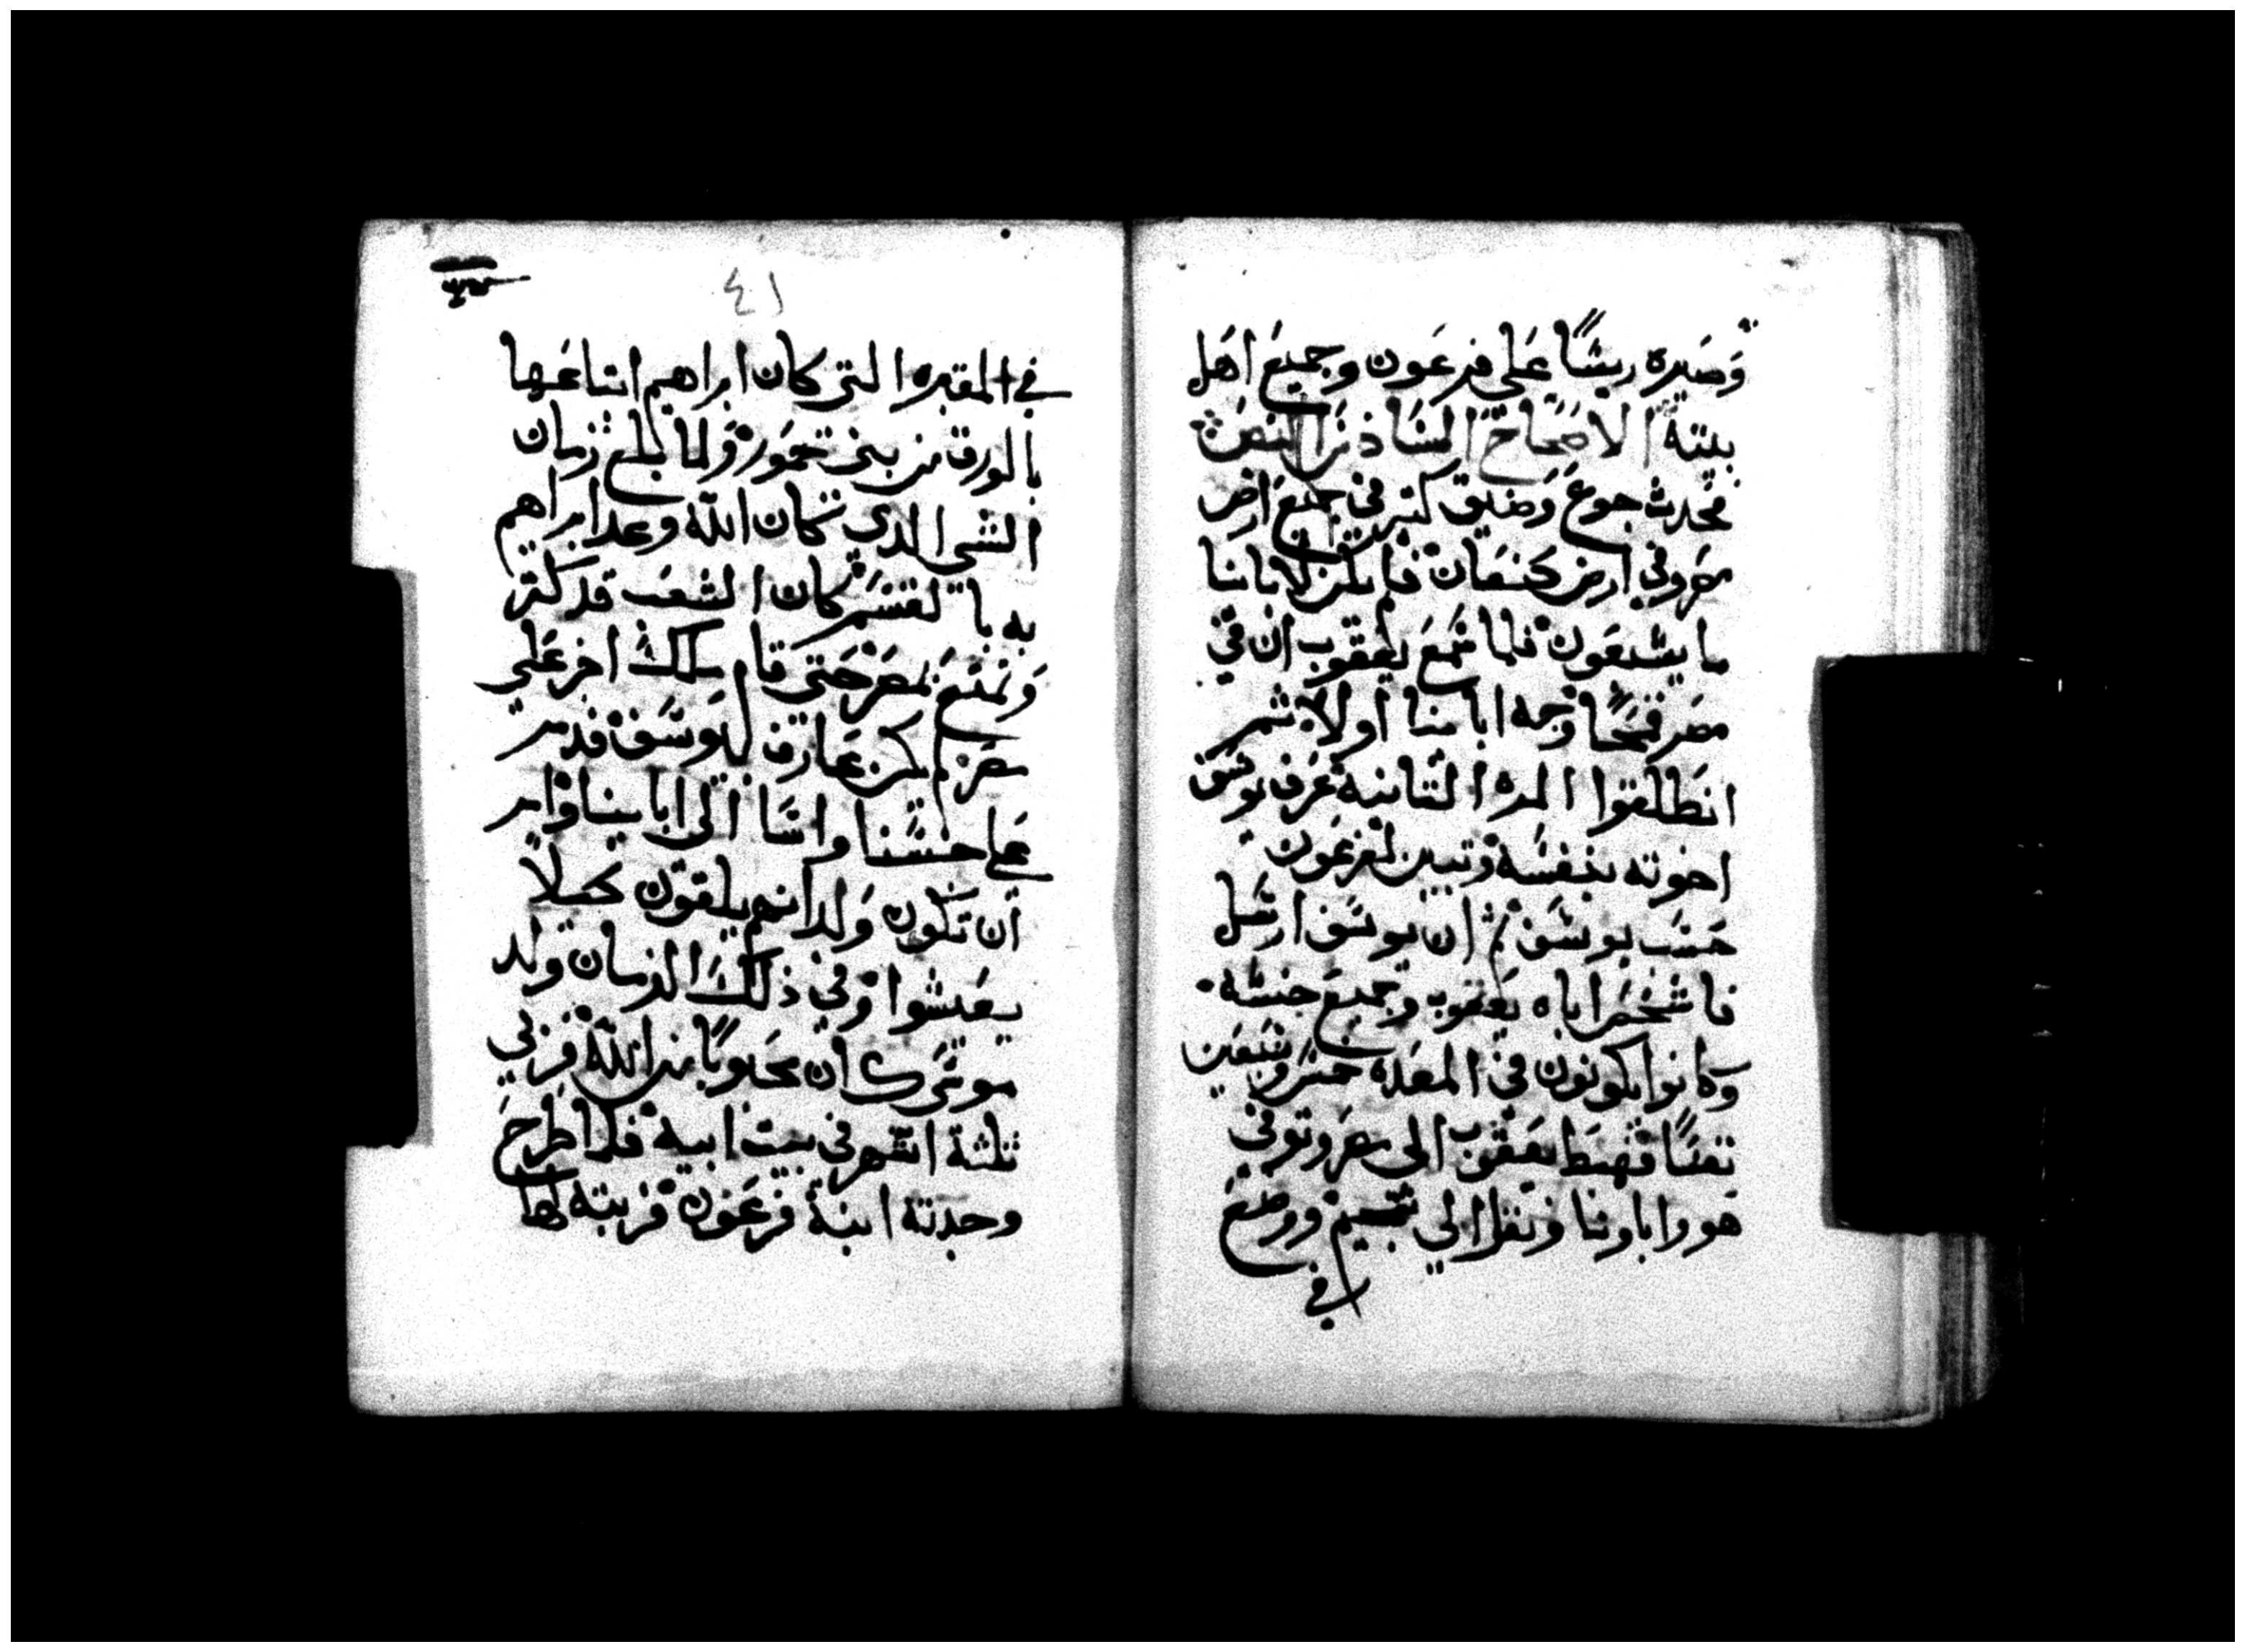 وَصَيره ريسًا عَلي فرعَون وجميعَ اهَل
بيته الاصَحَاح السَادَس النص
فحدث جوعَ وَضيق كثير في جميعَ ارض
مصر وفي ارض كنعَان فلم يكن لابَاينا
ما يشبعَون فلما سمعَ يعقوب ان في
مصر قمحًا وجه اباينا اولا ثم
انطلقوا المره الثانية عَرف يوسَف
اخوته بنفسَه وتبين لفرعَون
حَسَب يوسَف ثم ان يوسَف ارسَل
فاشخَصَ اباه يعقوب وجميعَ جنسَه
وكانوا يكونون في العَده خمسَه وسَبعَين
نفسًا فهبَط يعَقوب الي مصَر وتوفي
هو واباونا ونقل الي شخيم ووضع
في
٤١
في المقبره التي كان ابراهيم ابتاعَها
بالورق من بني حمَور ولما بلغ زمان
الشي الدي كان الله وعد ابراهيم
به بالقسَم كان الشعَب قد كثر
وَنمي بمصَر حَتي قام ملك اخر عَلي
مصَر لم يكن عَارف ليوسَف فدبر
عَلي جنسَنا واسَا الي اباينا وامر
ان تكون وَلدانهم يلقون كيلا
يعَيشوا وفي ذلك الزمان ولد
موسَي كان محَبوبًا من الله فربي
ثلثة اشهر في بيت ابيه فلما طرحَ
وجدته ابنة فرعَون فربته لها